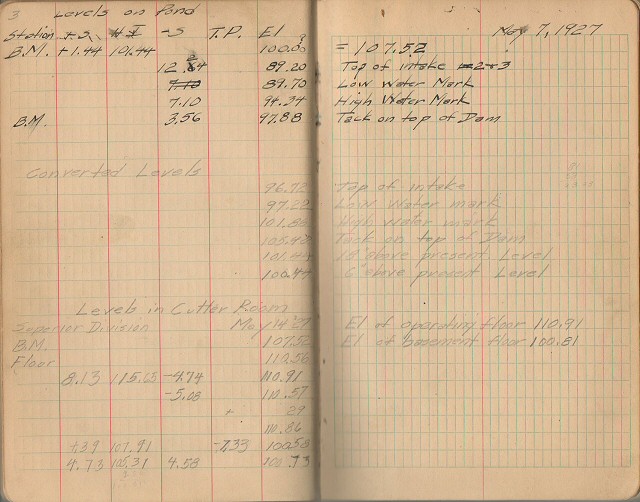 3 Levels on Pond
May 7, 1927
Station +S H.I -S T.P. El
B.M. +1.44 101.44 100.00 = 107.52
12.24 89.20 Top of intake
89.70 Low Water Mark
7.10 94.34 High Water Mark
B.M. 3.56 97.88 Tack on top of Dam
Converted Levels
96.72 Top of intake
97.22 Low water mark
101.86 High water mark
Tack on top of Dam
above present Level
100.47 6" above present Level
Levels in Cutter Room
Superior Division May 14 '27 El of operating floor 110.91
B.M. 107.52 El of basement floor 100.81
Floor 112.56
8.13 115.65 -4.74 110.91
-5.08 110.57
+ 29
110.86
+.39 107.91 -7.33 100.58
4.73 105.31 4.58 100.73